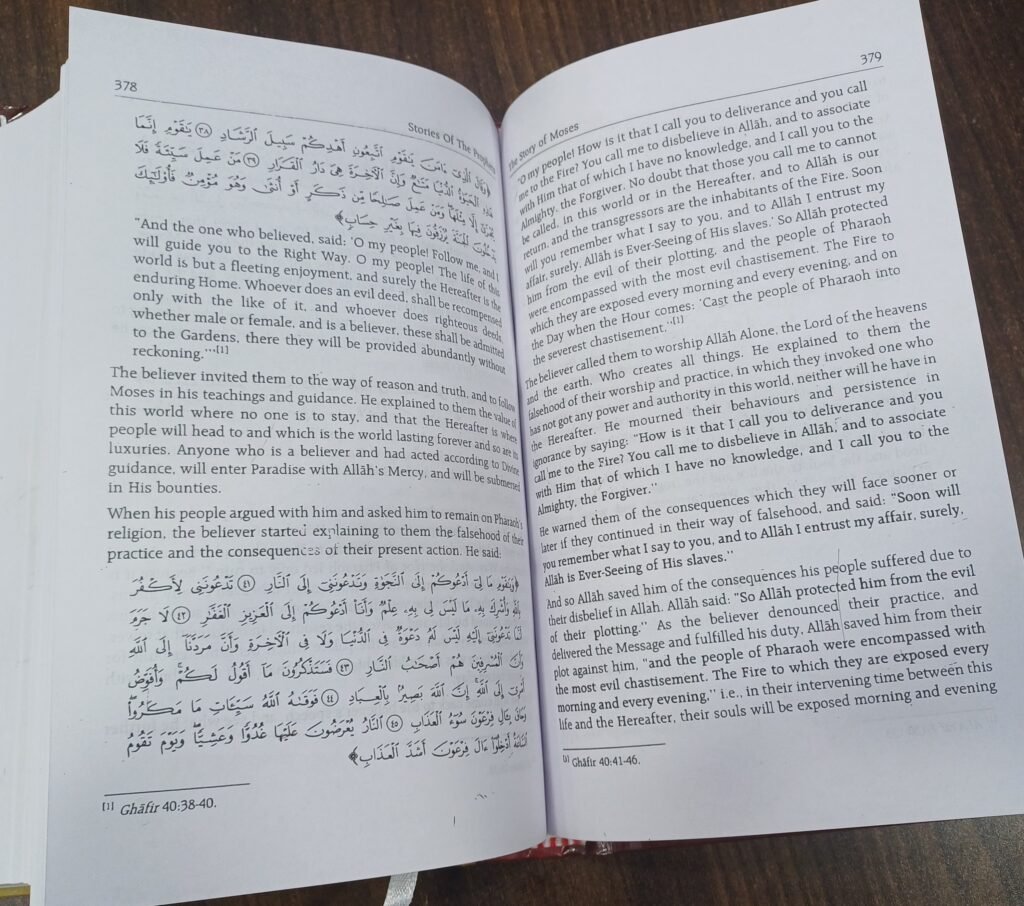 378
Stories Of The Prophets
﴿وَقَالَ ٱلَّذِىٓ ءَامَنَ يَٰقَوْمِ ٱتَّبِعُونِ أَهْدِكُمْ سَبِيلَ ٱلرَّشَادِ ٣٨ يَٰقَوْمِ إِنَّمَا
هَٰذِهِ ٱلْحَيَوٰةُ ٱلدُّنْيَا مَتَٰعٌ وَإِنَّ ٱلْءَاخِرَةَ هِىَ دَارُ ٱلْقَرَارِ ٣٩ مَنْ عَمِلَ سَيِّئَةً فَلَا
يُجْزَىٰٓ إِلَّا مِثْلَهَا وَمَنْ عَمِلَ صَٰلِحًا مِّن ذَكَرٍ أَوْ أُنثَىٰ وَهُوَ مُؤْمِنٌ فَأُو۟لَٰٓئِكَ
يَدْخُلُونَ ٱلْجَنَّةَ يُرْزَقُونَ فِيهَا بِغَيْرِ حِسَابٍ﴾
"And the one who believed, said: 'O my people! Follow me, and I
will guide you to the Right Way. O my people! The life of this
world is but a fleeting enjoyment, and surely the Hereafter is the
enduring Home. Whoever does an evil deed, shall be recompensed
only with the like of it, and whoever does righteous deeds,
whether male or female, and is a believer, these shall be admitted
to the Gardens, there they will be provided abundantly without
reckoning.'"[1]
The believer invited them to the way of reason and truth, and to follow
Moses in his teachings and guidance. He explained to them the value of
this world where no one is to stay, and that the Hereafter is where
people will head to and which is the world lasting forever and so are its
luxuries. Anyone who is a believer and had acted according to Divine
guidance, will enter Paradise with Allāh's Mercy, and will be submerged
in His bounties.
When his people argued with him and asked him to remain on Pharaoh's
religion, the believer started explaining to them the falsehood of their
practice and the consequences of their present action. He said:
﴿وَيَٰقَوْمِ مَا لِىٓ أَدْعُوكُمْ إِلَى ٱلنَّجَوٰةِ وَتَدْعُونَنِىٓ إِلَى ٱلنَّارِ ٤١ تَدْعُونَنِى لِأَكْفُرَ
بِٱللَّهِ وَأُشْرِكَ بِهِۦ مَا لَيْسَ لِى بِهِۦ عِلْمٌ وَأَنَا۠ أَدْعُوكُمْ إِلَى ٱلْعَزِيزِ ٱلْغَفَّٰرِ ٤٢ لَا جَرَمَ
أَنَّمَا تَدْعُونَنِىٓ إِلَيْهِ لَيْسَ لَهُۥ دَعْوَةٌ فِى ٱلدُّنْيَا وَلَا فِى ٱلْءَاخِرَةِ وَأَنَّ مَرَدَّنَآ إِلَى ٱللَّهِ
وَأَنَّ ٱلْمُسْرِفِينَ هُمْ أَصْحَٰبُ ٱلنَّارِ ٤٣ فَسَتَذْكُرُونَ مَآ أَقُولُ لَكُمْ وَأُفَوِّضُ
أَمْرِىٓ إِلَى ٱللَّهِ إِنَّ ٱللَّهَ بَصِيرٌۢ بِٱلْعِبَادِ ٤٤ فَوَقَىٰهُ ٱللَّهُ سَيِّـَٔاتِ مَا مَكَرُوا۟
وَحَاقَ بِـَٔالِ فِرْعَوْنَ سُوٓءُ ٱلْعَذَابِ ٤٥ ٱلنَّارُ يُعْرَضُونَ عَلَيْهَا غُدُوًّا وَعَشِيًّا وَيَوْمَ تَقُومُ
ٱلسَّاعَةُ أَدْخِلُوٓا۟ ءَالَ فِرْعَوْنَ أَشَدَّ ٱلْعَذَابِ﴾
[1] Ghāfir 40:38-40.
379
The Story of Moses
"O my people! How is it that I call you to deliverance and you call
me to the Fire? You call me to disbelieve in Allāh, and to associate
with Him that of which I have no knowledge, and I call you to the
Almighty, the Forgiver. No doubt that those you call me to cannot
be called, in this world or in the Hereafter, and to Allāh is our
return, and the transgressors are the inhabitants of the Fire. Soon
will you remember what I say to you, and to Allāh I entrust my
affair, surely, Allāh is Ever-Seeing of His slaves.' So Allāh protected
him from the evil of their plotting, and the people of Pharaoh
were encompassed with the most evil chastisement. The Fire to
which they are exposed every morning and every evening, and on
the Day when the Hour comes: 'Cast the people of Pharaoh into
the severest chastisement.'"[1]
The believer called them to worship Allāh Alone, the Lord of the heavens
and the earth. Who creates all things. He explained to them the
falsehood of their worship and practice, in which they invoked one who
has not got any power and authority in this world, neither will he have in
the Hereafter. He mourned their behaviours and persistence in
ignorance by saying: "How is it that I call you to deliverance and you
call me to the Fire? You call me to disbelieve in Allāh, and to associate
with Him that of which I have no knowledge, and I call you to the
Almighty, the Forgiver."
He warned them of the consequences which they will face sooner or
later if they continued in their way of falsehood, and said: "Soon will
you remember what I say to you, and to Allāh I entrust my affair, surely,
Allāh is Ever-Seeing of His slaves."
And so Allāh saved him of the consequences his people suffered due to
their disbelief in Allah. Allāh said: "So Allāh protected him from the evil
of their plotting." As the believer denounced their practice, and
delivered the Message and fulfilled his duty, Allāh saved him from their
plot against him, "and the people of Pharaoh were encompassed with
the most evil chastisement. The Fire to which they are exposed every
morning and every evening," i.e., in their intervening time between this
life and the Hereafter, their souls will be exposed morning and evening
[1] Ghāfir 40:41-46.